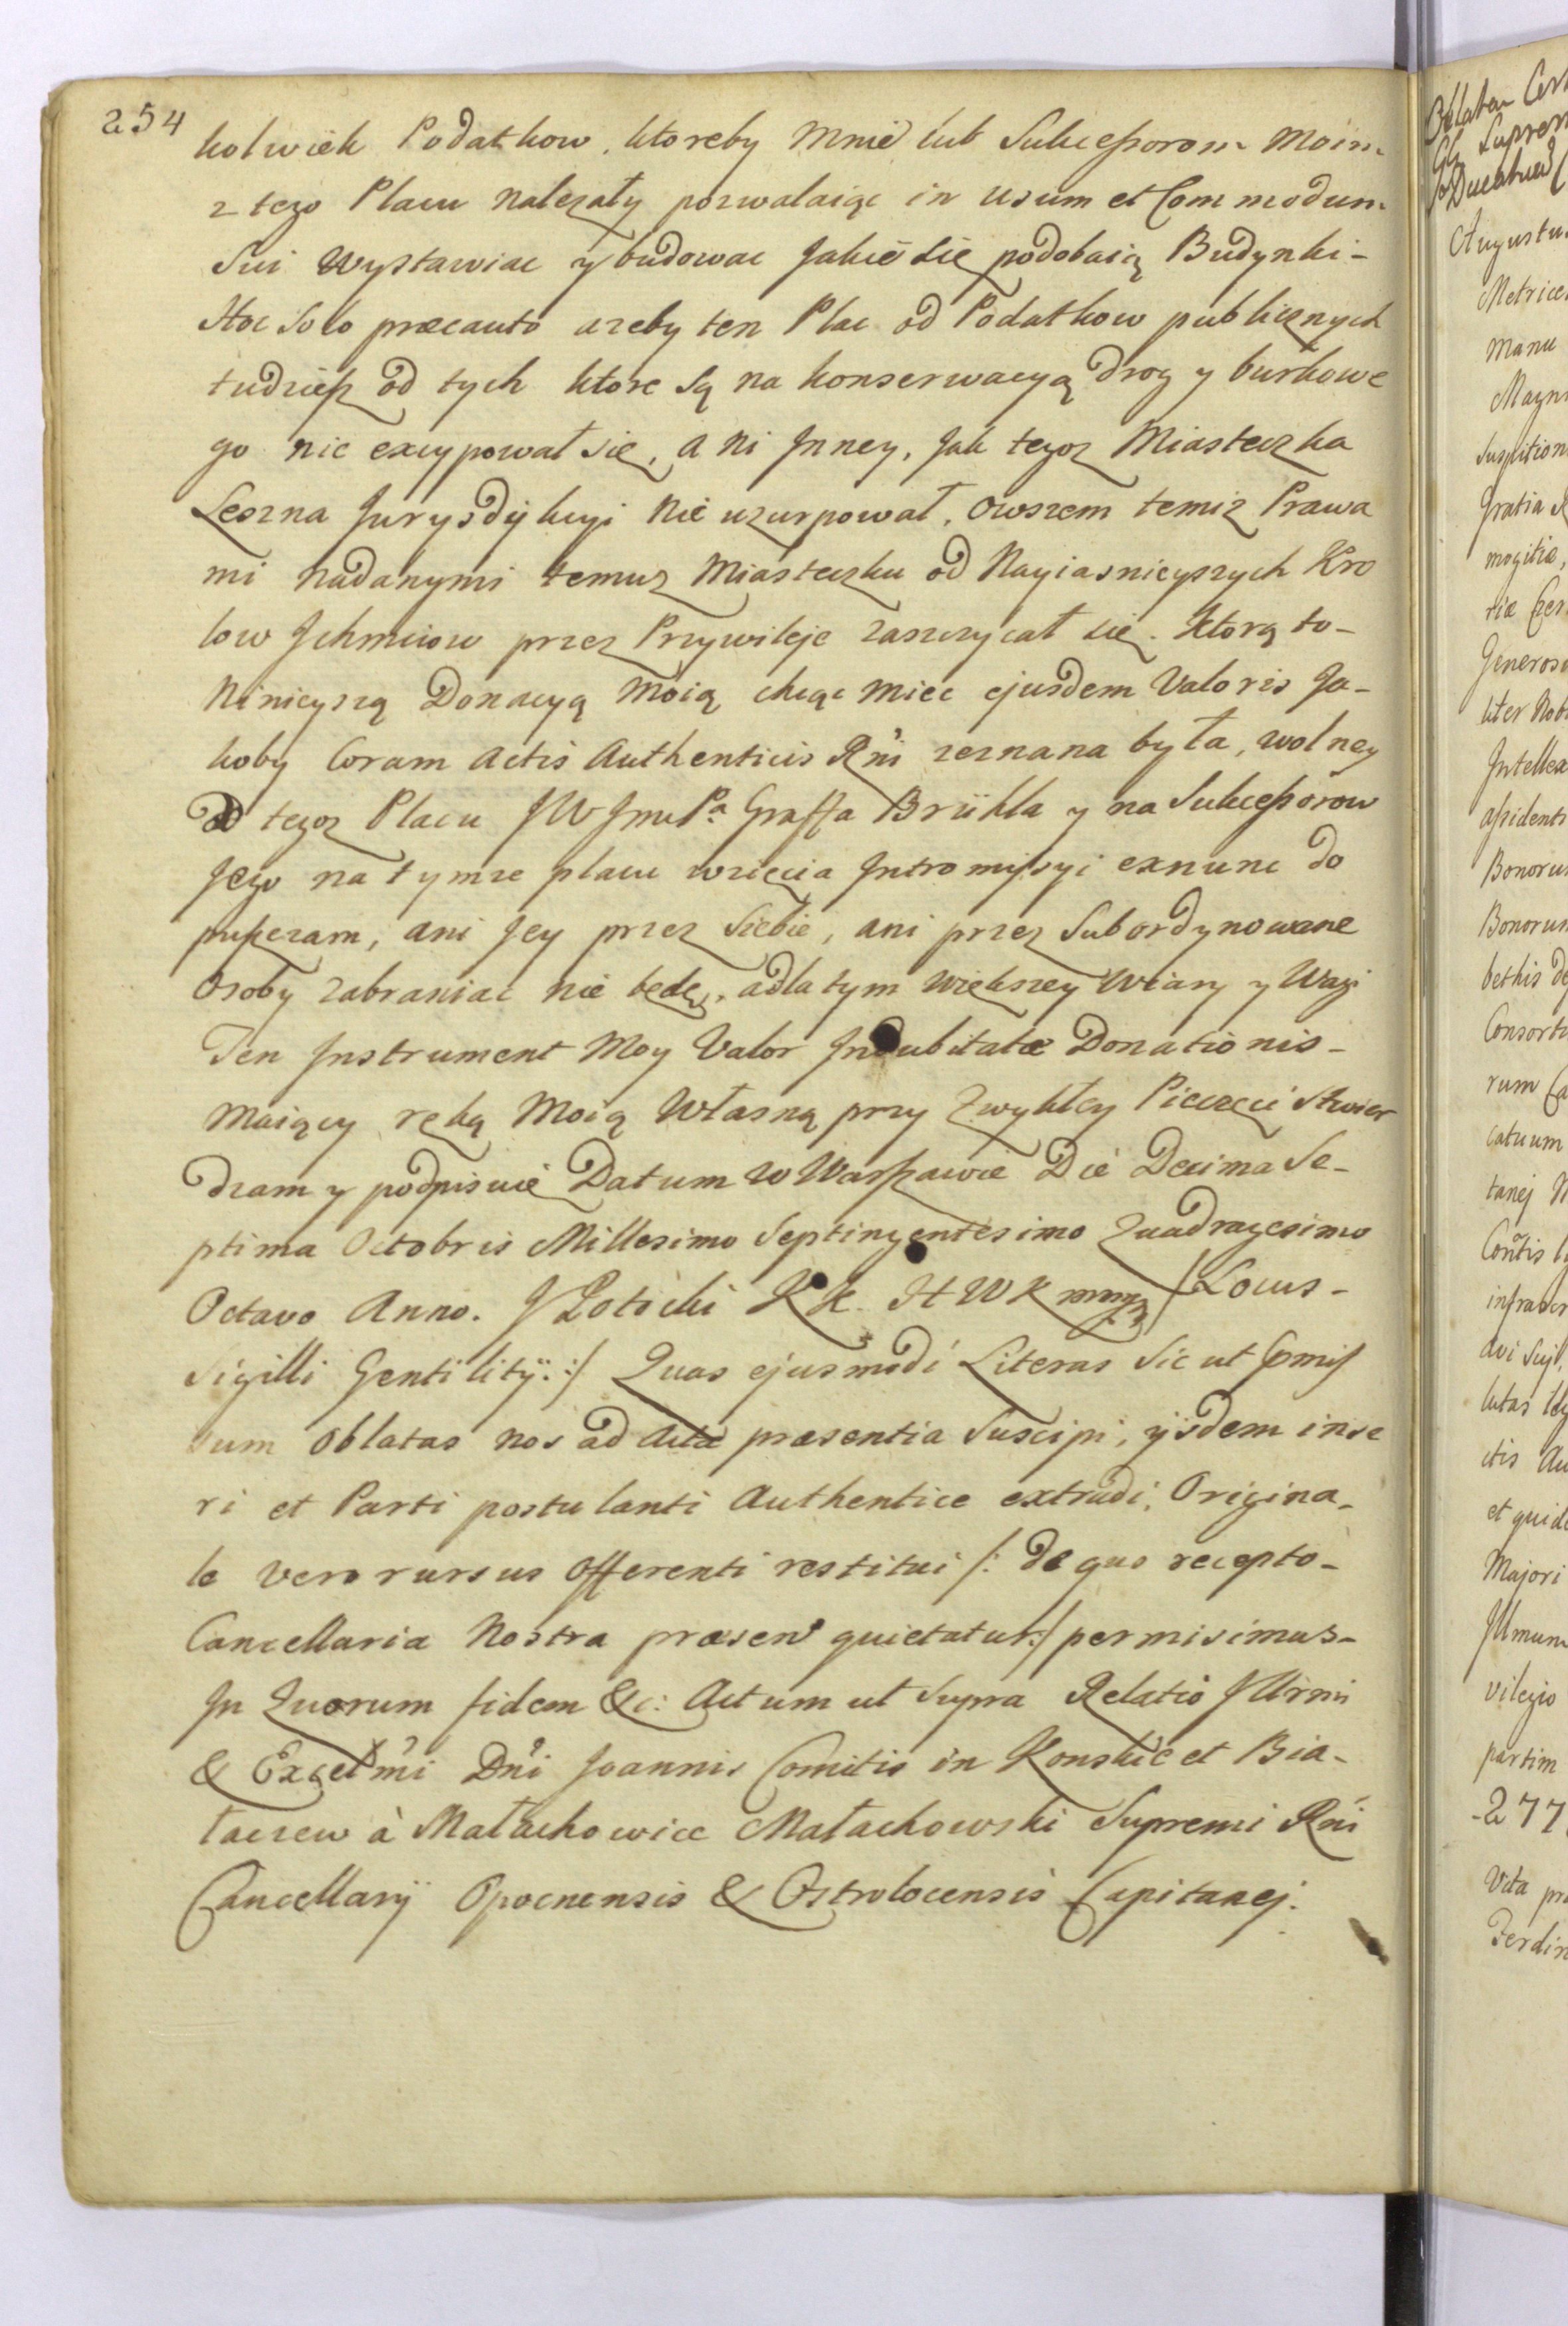 254
kolwiek Podatkow, ktoreby Mnie lub Sukceßorom Moim
z tego Placu należały pozwalaiąc in usum et Commodum
Sui Wystawiac y budowac Jakie sie podobaią Budynki-
Hoc Solo præcauto azeby ten Plac od Podatkow publicznych
tudzieß od tych ktore Są na konserwacyą drog y burkowe
go nie excypował się, ani Jnney, Jak tegoz Miasteczka
Leszna Jurysdykcyi Nie uzurpował, owszem temiz Prawa
mi nadanymi temuz Miasteczku od Nayiasnieyszych Kro
low Jchmciow przez Przywileje zaszczycał się. Którą to-
Ninieyszą Donacyą Moią chcąc Miec ejusdem Valoris Ja-
koby Coram Actis Authenticis Rni zeznana była, wolney
od tegoz Placu JW JmcPa Graffa Brühla y na Sukceßorow
Jego na tymze placu wzięcia Jntromißyi exnunc do
pußczam, ani Jey przez Siebie, ani przez Subordynowane
Osoby zabraniac nie będę, adla tym większey Wiary y Wagi
Ten Jnstrument Moy Valor Jndubitatæ Donationis-
Maiący ręką Moią Własną przy Zwykłey Pieczęci Stwier
dzam y podpisuię Datum w Warßawie Die Decima Se-
ptima Octobris Millesimo Septingentesimo Quadragesimo
Octavo Anno. J Potocki K K. H W K mmpp /Locus-
Sigilli Gentilitÿ:/ Quas ejusmodi Literas Sic ut Præmis
sum oblatas nos ad Acta præsentia Suscipi, ÿsdem inse
ri et Parti postulanti Authentice extradi, Origina-
le vero rursus offerenti restitui /: de quo recepto-
Cancellaria Nostra præsens quietatur:/ permisimus-
Jn Quorum fidem &c: Actum ut Supra Relatio Jllrmi
& Excelmi Dni Joannis Comitis in Konskie et Bia-
łaczew à Małachowice Małachowski Supremi Rni
Cancellarÿ Opocnensis & Ostrolocensis Capitanej.
Oblata
Suprem
Ducatus
Augustus
Metrices
Manu
Magn
Suspition
Gratia
mogitiæ,
riæ Czer
Generoso
liter Nob
Jntellex
aßidenti
Bonorum
Bonorum
bethis de
Consorti
rum Ca
catuum
tanej
infrascr
et quide
Majori
Jllmum
vilegio
partim
-277
Vita pr
Ferdin